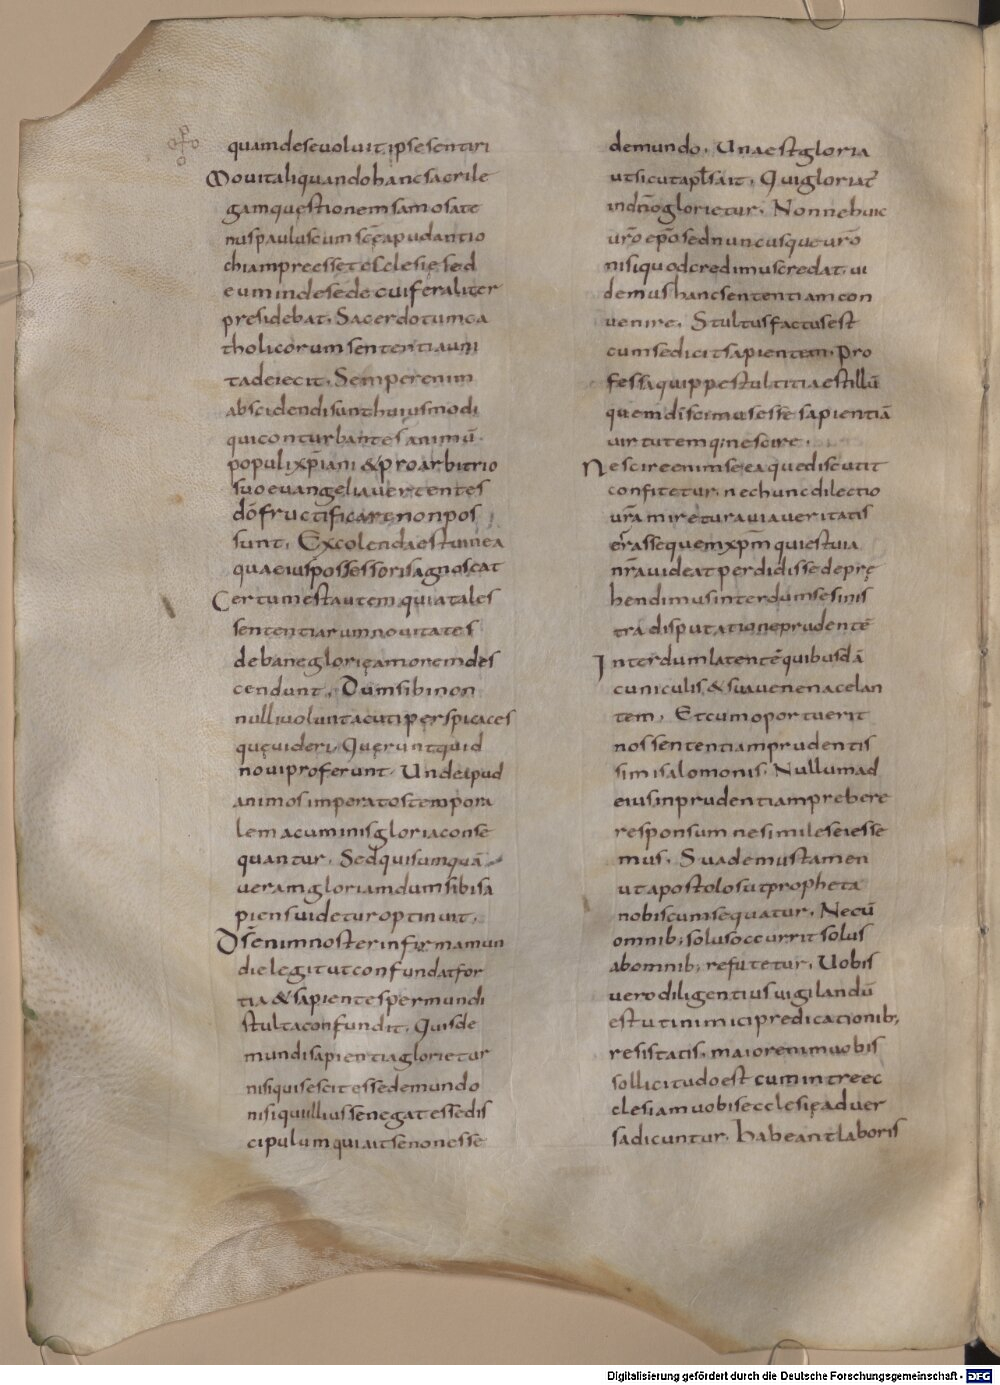 quam de se voluit ipse sentiri
Movit aliquando hanc sacrile
gam questionem samosate
nus paulus cum sc̄ę apud antio
chiam preesset ecclesię sed
eum inde sede cui feraliter
presidebat. Sacerdotum ca
tholicorum sententia uni
ta deiecit. Semper enim
abscidendi sunt huiusmodi
qui conturbantes animū
populi xp̄iani & pro arbitrio
suo evangelia vertentes
dō fructificare non pos
sunt. Excolenda est vinea
quae eius possessoris agnoscat
Certum est autem quia tales
sententiarum novitates
de bane glorię amorem des
cendunt. Dum sibi non
nulli volunt acuti perspicaces
quę videri. Querunt quid
novi proferunt. Unde apud
animos imperatos tempora
lem acuminis gloria conse
quantur. Sed quis umquā
veram gloriam dum sibi sa
piens videtur optinuit.
Ds̄ enim noster infirma mun
di elegit ut confundat for
tia & sapientes per mundi
stulta confundit. Quis de
mundi sapientia glorietur
nisi qui se scit esse de mundo
nisi qui illius se negat esse dis
cipulum qui ait se non esse
de mundo. Una est gloria
ut sicut apl̄s ait. Qui gloriat̄
in dn̄o glorietur. Nonne huic
vr̄o ep̄o sed nuncusque vr̄o
nisi quod credimus credat. vi
demus hanc sententiam con
venire. Stultus factus est
cum se dicit sapientem. Pro
fessa quippe stultitia est illū
quem discimus esse sapientiā
virtutemq; nescire.
Nescire enim se ea que discutit
confitetur. nec hunc dilectio
vr̄a miretur a via veritatis
errasse quem xp̄m qui est via
nr̄a videat perdidisse deprę
hendimus interdum se sinis
tra disputatione prudentē
Interdum latentē quibusdā
cuniculis & sua venena celan
tem. Et cum oportuerit
nos sententiam prudentis
simi salomonis. Nullum ad
eius inprudentiam prebere
responsum ne similes ei esse
mus. Suademus tamen
ut apostolos ut propheta
nobiscum sequatur. Ne cū
omnib; solus occurrit solus
ab omnib; refutetur. Uobis
vero diligentius vigilandū
est ut inimici predicationib;
resistatis. maior enim vobis
sollicitudo est cum intra ec
clesiam vobis ecclesię adver
sa dicuntur. Habeant laboris
Digitalisierung gefördert durch die Deutsche Forschungsgemeinschaft - DFG